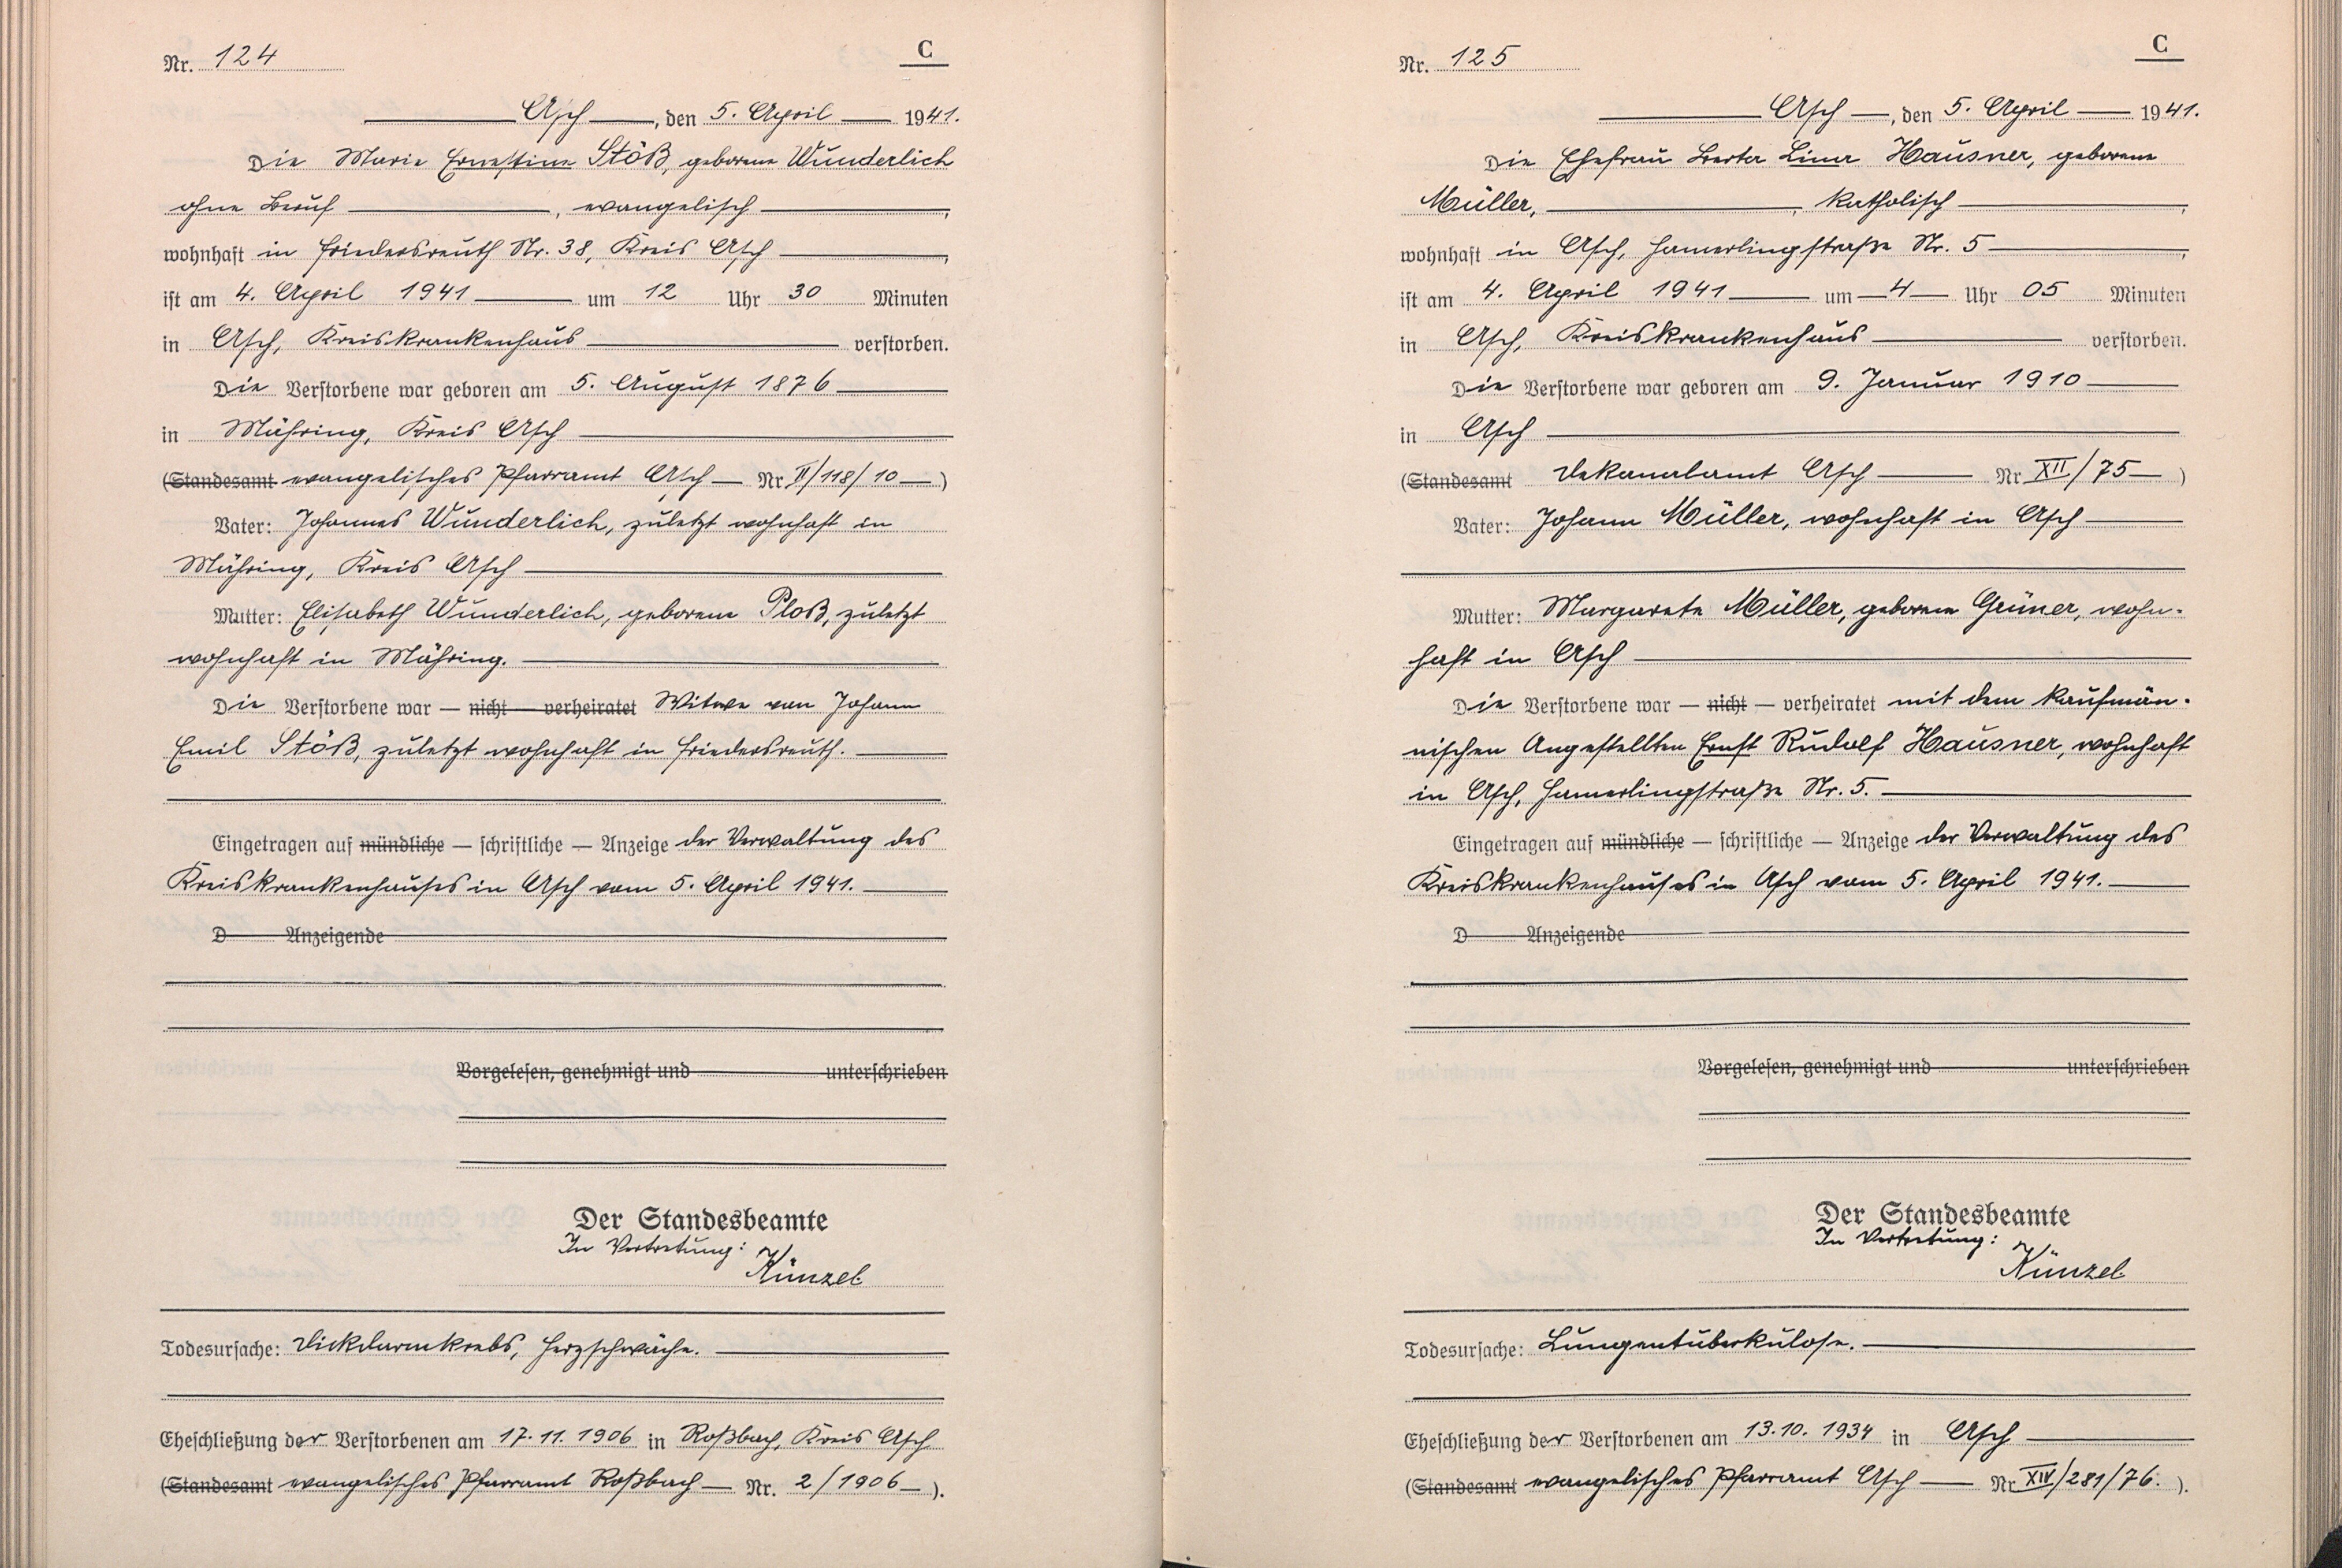 Nr. 124
C
Asch, den 5. April 1941.
Die Marie Ernestine Stöß, geborene Wunderlich
ohne Beruf, evangelisch,
wohnhaft in Friedersreuth Nr. 38, Kreis Asch,
ist am 4. April 1941 um 12 Uhr 30 Minuten
in Asch, Kreiskrankenhaus verstorben.
Die Verstorbene war geboren am 5. August 1876
in Mähring, Kreis Asch
(Standesamt evangelisches Pfarramt Asch Nr II/118/10)
Vater: Johannes Wunderlich, zuletzt wohnhaft in
Mähring, Kreis Asch
Mutter: Elisabeth Wunderlich, geborene Ploß, zuletzt
wohnhaft in Mähring.
Die Verstorbene war — nicht — verheiratet Witwe von Johann
Emil Stöß, zuletzt wohnhaft in Friedersreuth.
Eingetragen auf mündliche — schriftliche — Anzeige der Verwaltung des
Kreiskrankenhauses in Asch vom 5. April 1941.
D Anzeigende
Vorgelesen, genehmigt und unterschrieben
Der Standesbeamte
In Vertretung:
Künzel
Todesursache: Dickdarmkrebs, Herzschwäche.
Eheschließung der Verstorbenen am 17.11.1906 in Roßbach, Kreis Asch
(Standesamt evangelisches Pfarramt Roßbach Nr. 2/1906).
Nr. 125
C
Asch, den 5. April 1941.
Die Ehefrau Berta Lina Hausner, geborene
Müller, , katholisch,
wohnhaft in Asch, Hamerlingstraße Nr. 5,
ist am 4. April 1941 um 4 Uhr 05 Minuten
in Asch, Kreiskrankenhaus verstorben.
Die Verstorbene war geboren am 9. Januar 1910
in Asch
(Standesamt Dekanalamt Asch Nr XII/75)
Vater: Johann Müller, wohnhaft in Asch
Mutter: Margarete Müller, geborene Grüner, wohn-
haft in Asch
Die Verstorbene war — nicht — verheiratet mit dem kaufmän-
nischen Angestellten Ernst Rudolf Hausner, wohnhaft
in Asch, Hamerlingstraße Nr. 5.
Eingetragen auf mündliche — schriftliche — Anzeige der Verwaltung des
Kreiskrankenhauses in Asch vom 5. April 1941.
D Anzeigende
Vorgelesen, genehmigt und unterschrieben
Der Standesbeamte
In Vertretung:
Künzel
Todesursache: Lungentuberkulose.
Eheschließung der Verstorbenen am 13.10.1934 in Asch
(Standesamt evangelisches Pfarramt Asch Nr XIV/281/76.).